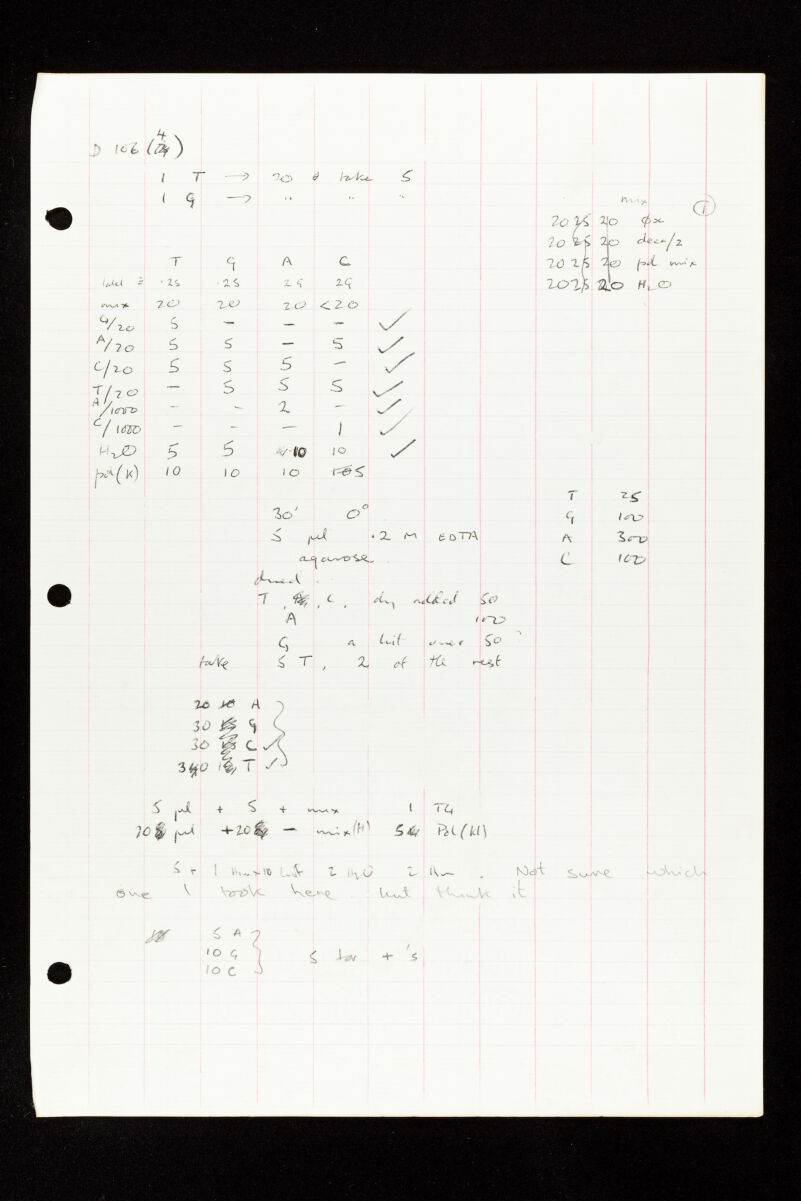 D 106 (4)
1 T → 20 & take 5
1 G → " " "
mix ①
20 25 20 φx
20 25 20 deca/2
20 25 20 pol mix
20 25 20 H2O
T G A C
label = .25 .25 29 29
mix 20 20 20 <20
G/20 5 – – – ✓
A/20 5 5 – 5 ✓
C/20 5 5 5 – ✓
T/20 – 5 5 5 ✓
A/1000 – – 2 – ✓
C/1000 – – – 1 ✓
H2O 5 5 10 10 ✓
pol(K) 10 10 10 5
T 25
G 100
A 300
C 100
30' 0°
5 µl .2 M EDTA
agarose.
dried.
T, C, dry added 50
A 100
G a bit over 50
take 5 T, 2 of the rest
20 A
30 G
30 C ✓
30 T ✓
5 µl + 5 + mix 1 T4
20 µl + 20 – mix(H) 5 Pol(Kl)
5 + 1 2 H2O 2. Not sure which
one I took here. but think it
5 A
10 G
10 C
5 + 's